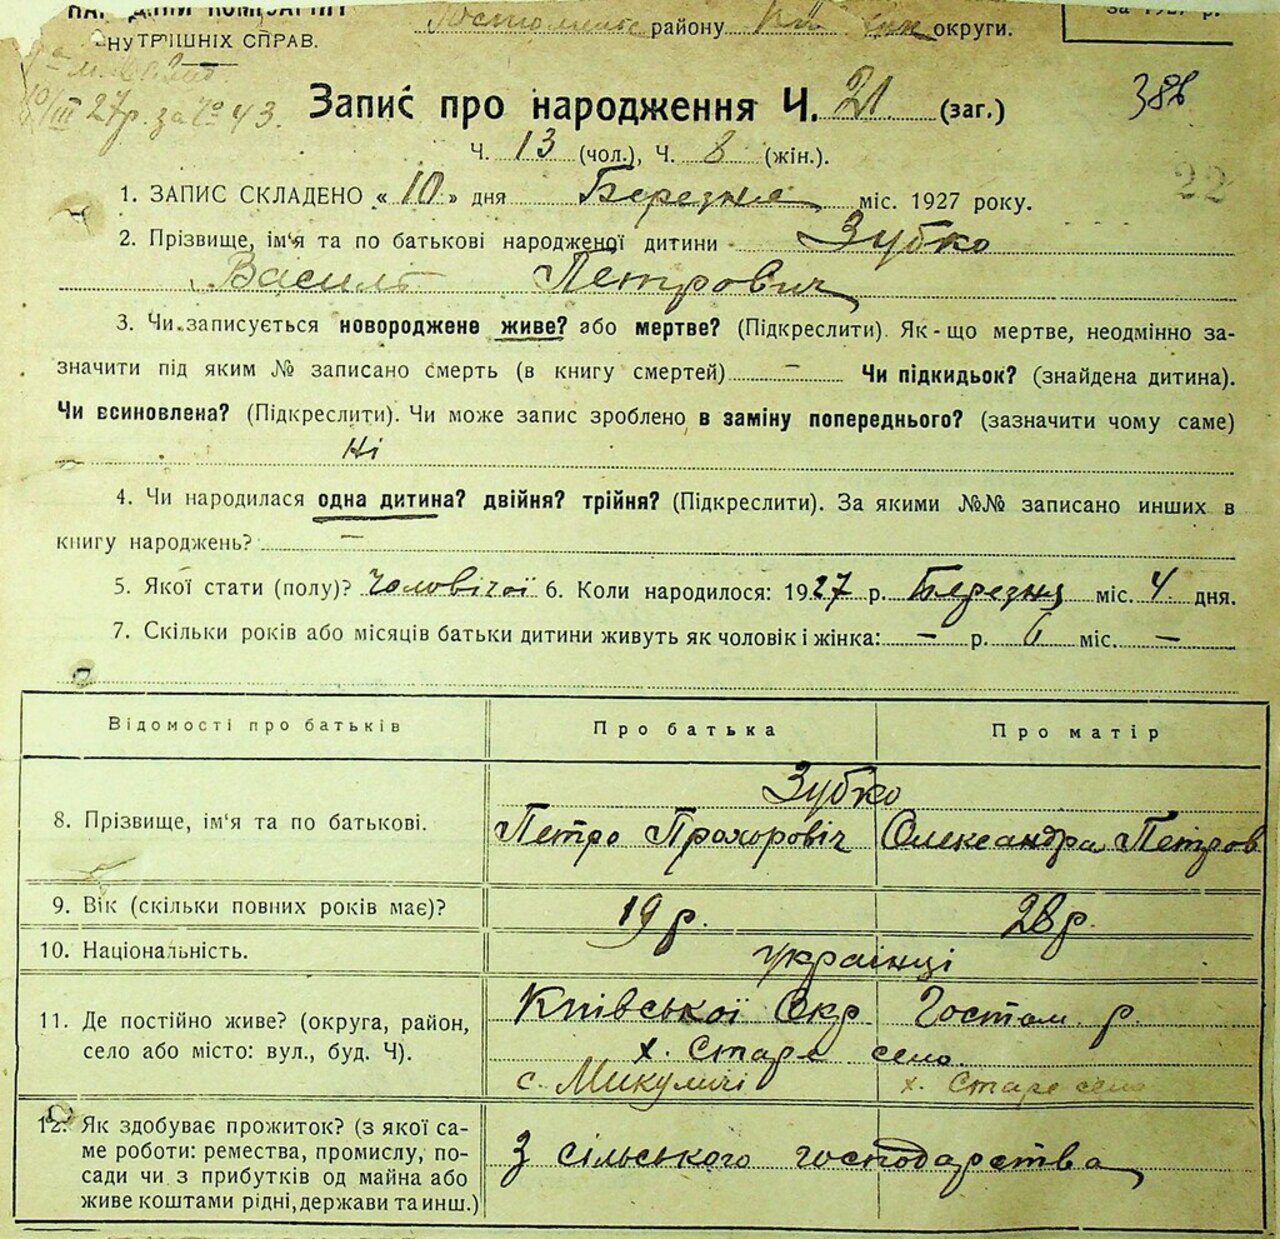 внутрішніх справ.
району округи.
за 1927 р.
III 27 р. за № 43.
Запис про народження Ч. 21 (заг.)
388
Ч. 13 (чол.), Ч. 8 (жін.).
22
1. ЗАПИС СКЛАДЕНО « 10 » дня Березня міс. 1927 року.
2. Прізвище, ім'я та по батькові народженої дитини Зубко
Василь Петрович
3. Чи записується новороджене живе? або мертве? (Підкреслити). Як-що мертве, неодмінно за-
значити під яким № записано смерть (в книгу смертей) — Чи підкидьок? (знайдена дитина).
Чи всиновлена? (Підкреслити). Чи може запис зроблено в заміну попереднього? (зазначити чому саме)
Ні
4. Чи народилася одна дитина? двійня? трійня? (Підкреслити). За якими №№ записано инших в
книгу народжень? —
5. Якої стати (полу)? чоловічої 6. Коли народилося: 1927 р. Березня міс. 4 дня.
7. Скільки років або місяців батьки дитини живуть як чоловік і жінка: — р. 6 міс. —
Відомості про батьків Про батька Про матір
Зубко
8. Прізвище, ім'я та по батькові. Петро Прохоровіч Олександра Петров
9. Вік (скільки повних років має)? 19 р. 28 р.
10. Національність. українці
11. Де постійно живе? (округа, район, Київської Окр Гостом. р.
село або місто: вул., буд. Ч). х. Старе село.
с. Микуличі х. Старе село
12. Як здобуває прожиток? (з якої са-
ме роботи: ремества, промислу, по- З сільського господарства
сади чи з прибутків од майна або
живе коштами рідні, держави та инш.)